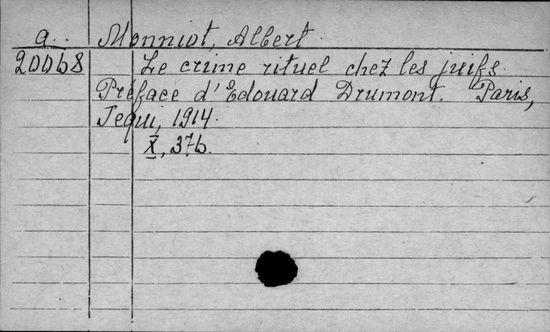 a.. Monniot, Albert
20068 Le crime rituel chez les juifs.
Préface d'Edouard Drumont. Paris,
Tequi, 1914.
X, 376.